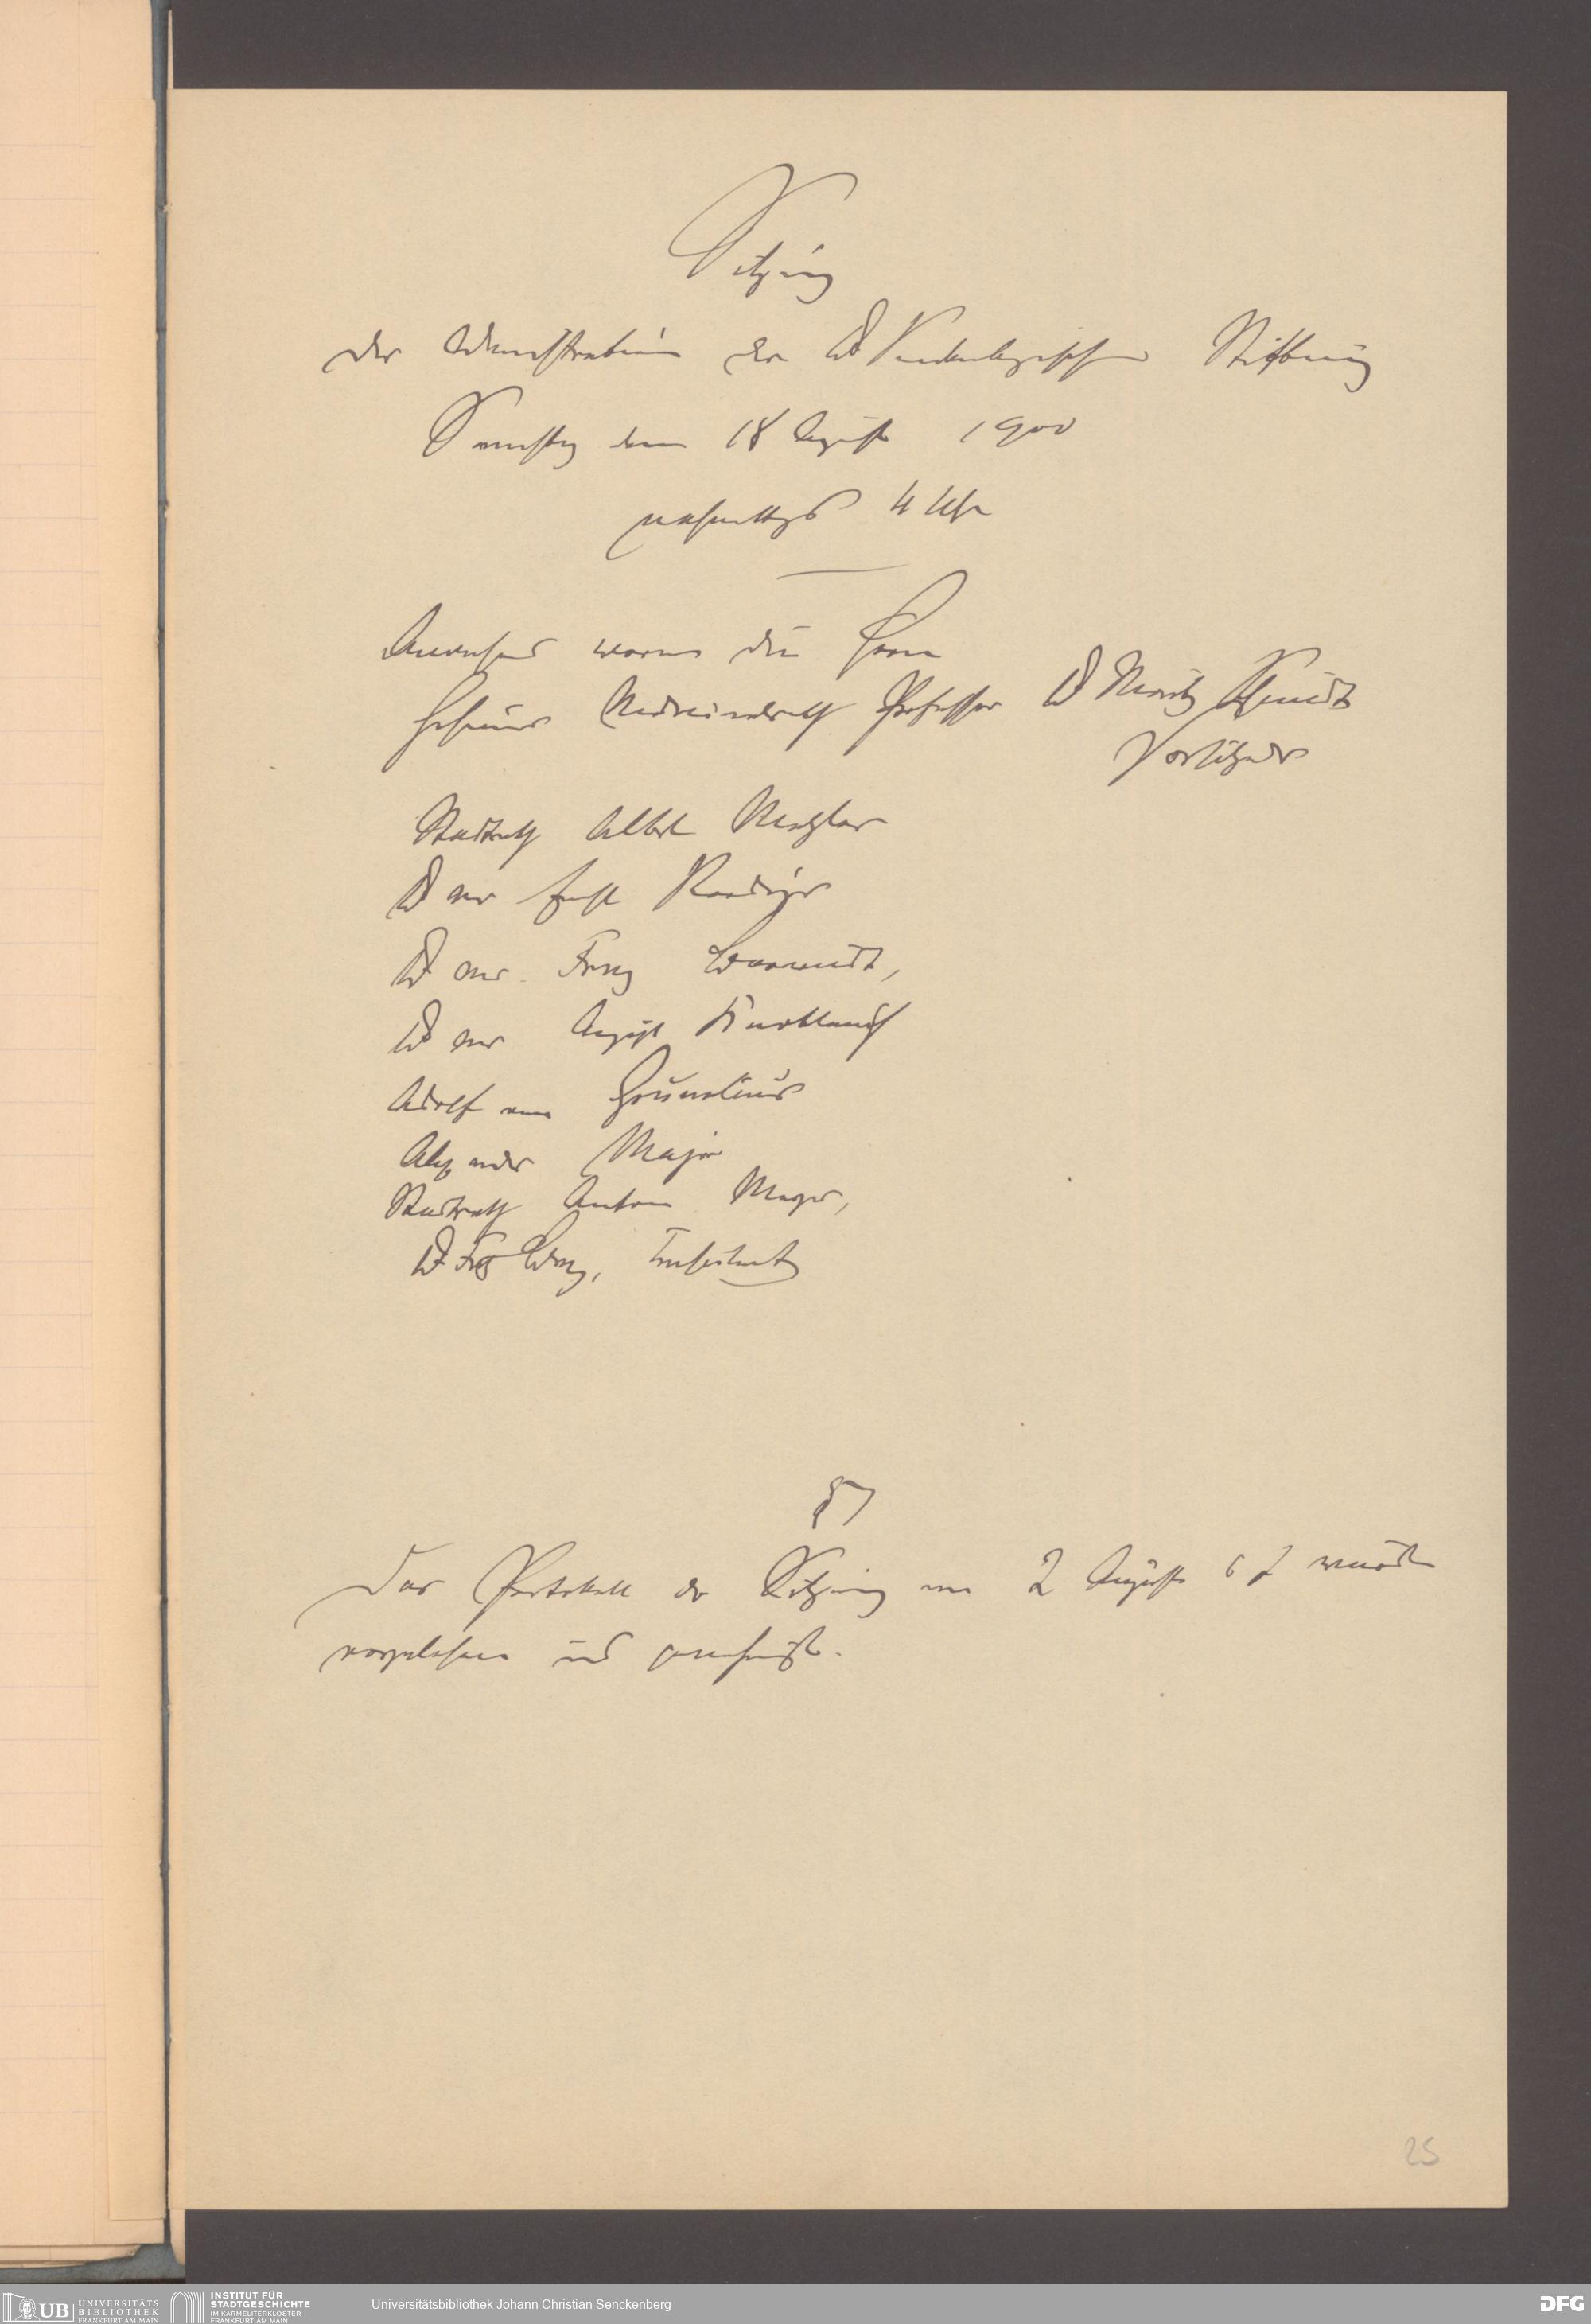 Sitzung
der Administration der Dr Senckenbergischen Stiftung
Samstag den 18 August 1900
nachmittags 4 Uhr
Anwesend waren die Herren
Geheimer Medicinalrath Professor Dr Moritz Schmidt
Vorsitzender
Stadtrath Albert Metzler
Dr med Ernst Roediger
Dr med. Franz
Dr med August Knoblauch
Adolf von Grunelius
Alexander Majer
Stadtrath Anton Meyer,
Dr Fritz Berg, Consulent
§ 1
Das Protokoll der Sitzung vom 2 August d J wurde
vorgelesen und genehmigt.
25
UB UNIVERSITÄTS
BIBLIOTHEK
FRANKFURT AM MAIN
INSTITUT FÜR
STADTGESCHICHTE
IM KARMELITERKLOSTER
FRANKFURT AM MAIN
Universitätsbibliothek Johann Christian Senckenberg
DFG